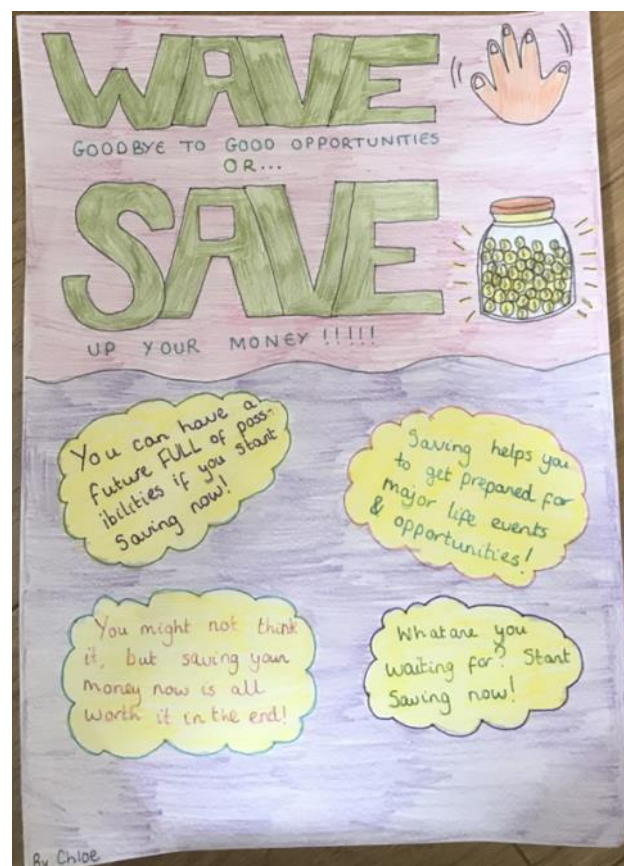 WAVE
GOODBYE TO GOOD OPPORTUNITIES
OR...
SAVE
UP YOUR MONEY !!!!!
You can have a
future FULL of poss-
ibilities if you start
Saving now!
Saving helps you
to get prepared for
major life events
& opportunities!
You might not think
it, but saving your
money now is all
worth it in the end!
What are you
waiting for? Start
Saving now!
By Chloe